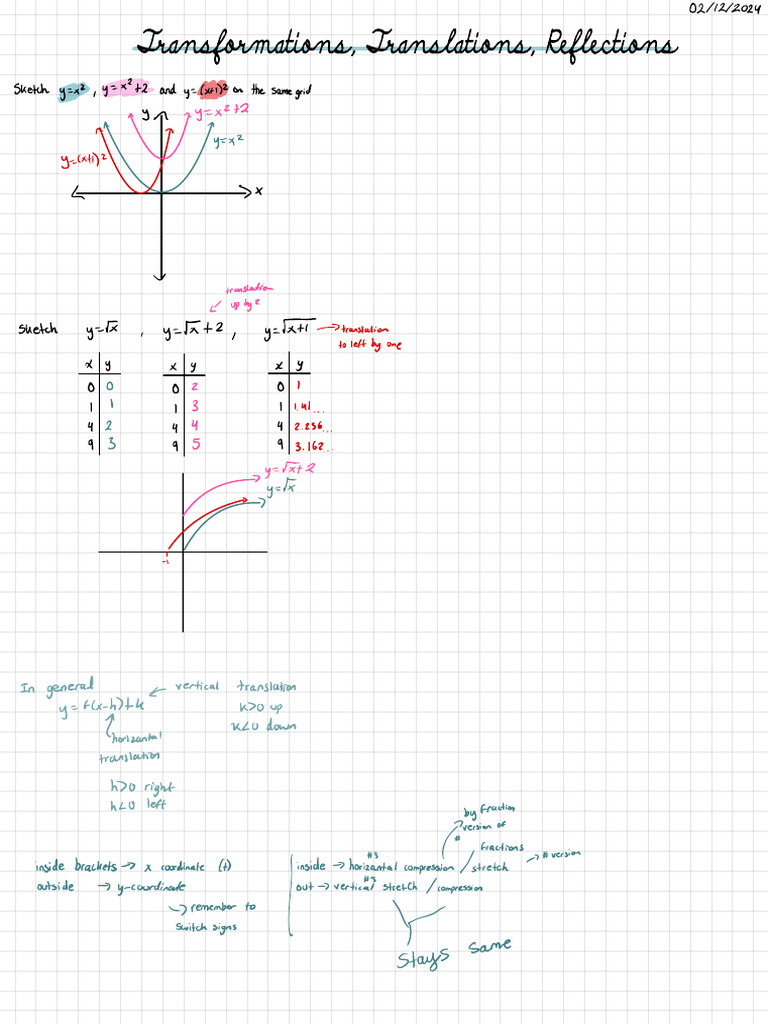 02/12/2024
Transformations, Translations, Reflections
Sketch y=x², y=x²+2 and y=(x+1)² on the same grid
y
y=x²+2
y=x²
y=(x+1)²
x
translation
up by 2
Sketch y=√x , y=√x+2 , y=√x+1 → translation
to left by one
x y x y x y
0 0 0 2 0 1
1 1 1 3 1 1.41...
4 2 4 4 4 2.236...
9 3 9 5 9 3.162...
y=√x+2
y=√x
-1
In general
y=f(x-h)+k ← vertical translation
k>0 up
k<0 down
horizontal
translation
h>0 right
h<0 left
by fraction
version of
#
fractions
#'s
inside brackets → x coordinate (t)
inside → horizontal compression / stretch → # version
#'s
outside → y-coordinate
out → vertical stretch / compression
→ remember to
switch signs
stays same